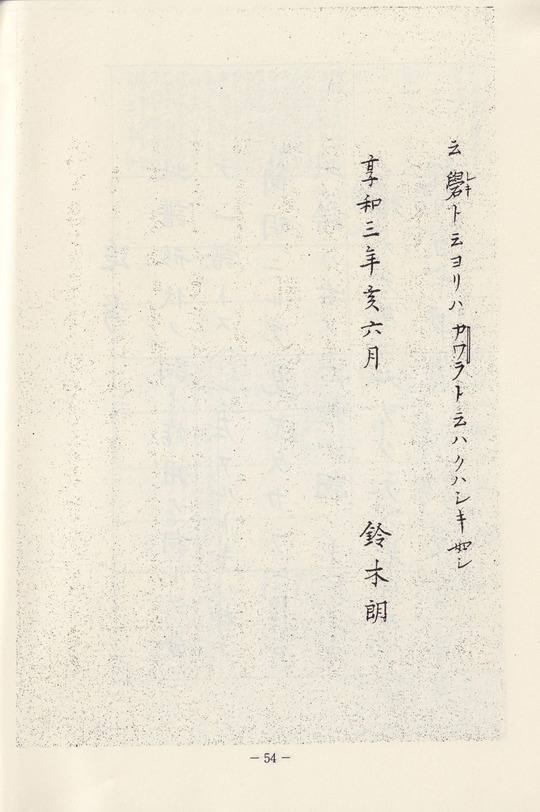 云礐レキト云ヨリハカワラト云ハクハシキ如シ
享和三年亥六月 鈴木朗
－54－